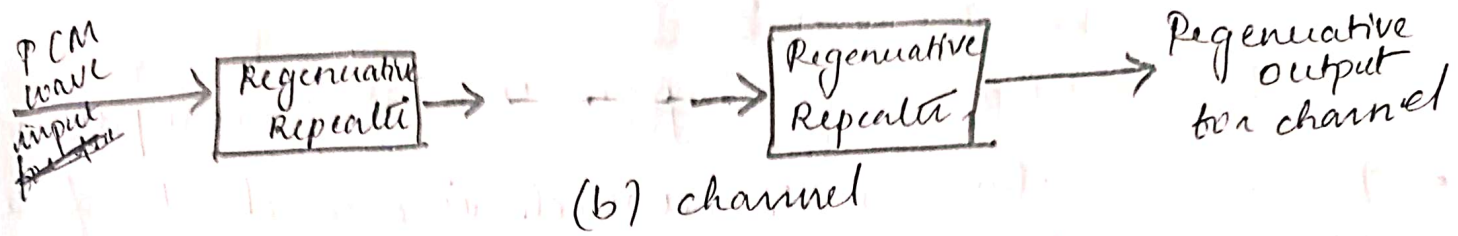 PCM
wave
input
Regenerative
Repeater
Regenerative
Repeater
Regenerative
output
for channel
(b) channel